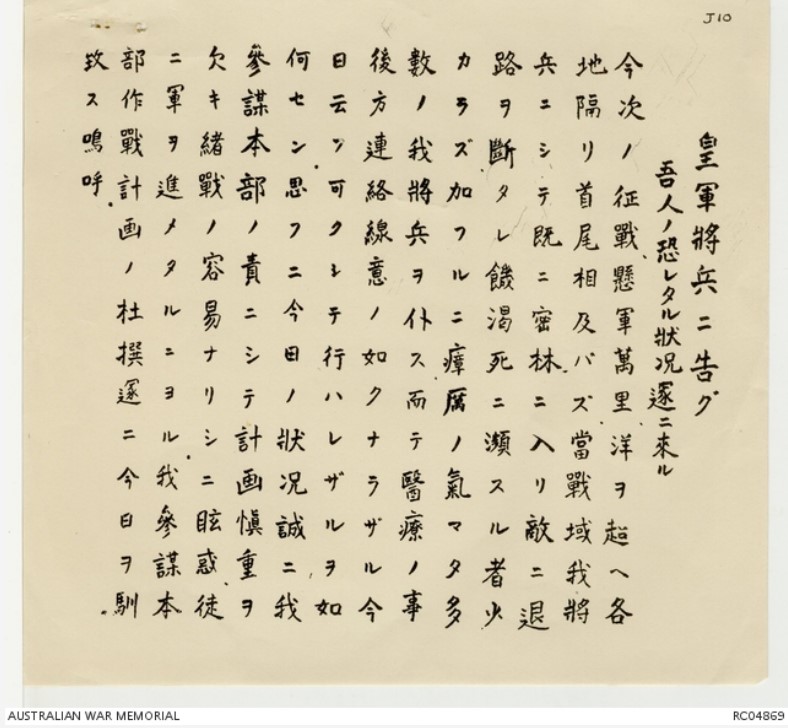 J10
皇軍將兵ニ告グ
吾人ノ恐レタル狀况遂ニ來ル
今次ノ征戰、懸軍萬里洋ヲ超ヘ各
地隔リ首尾相及バズ當戰域我將
兵ニシテ既ニ密林ニ入リ敵ニ退
路ヲ斷タレ饑渴死ニ瀕スル者少
カラズ加フルニ瘴厲ノ氣マタ多
數ノ我將兵ヲ仆ス而テ醫療ノ事
後方連絡線意ノ如クナラザル今
日云フ可クシテ行ハレザルヲ如
何セン.思フニ今日ノ狀况誠ニ我
參謀本部ノ責ニシテ計画愼重ヲ
欠キ緒戰ノ容易ナリシニ眩惑、徒
ニ軍ヲ進メタルニヨル.我參謀本
部作戰計画ノ杜撰遂ニ今日ヲ馴
致ス嗚呼.
AUSTRALIAN WAR MEMORIAL
RC04869